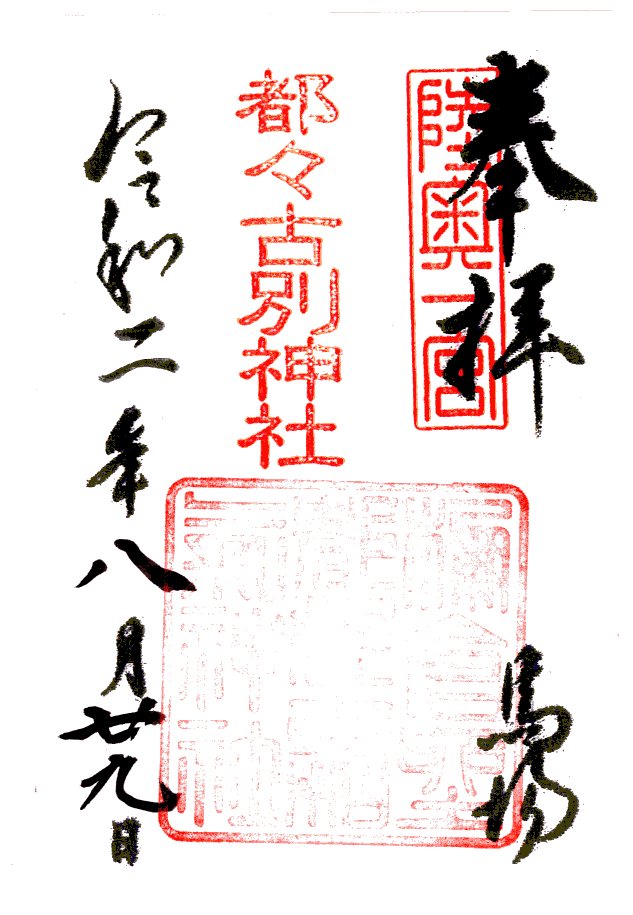 奉拝
陸奥一宮
馬場
都々古別神社
令和二年八月廿九日